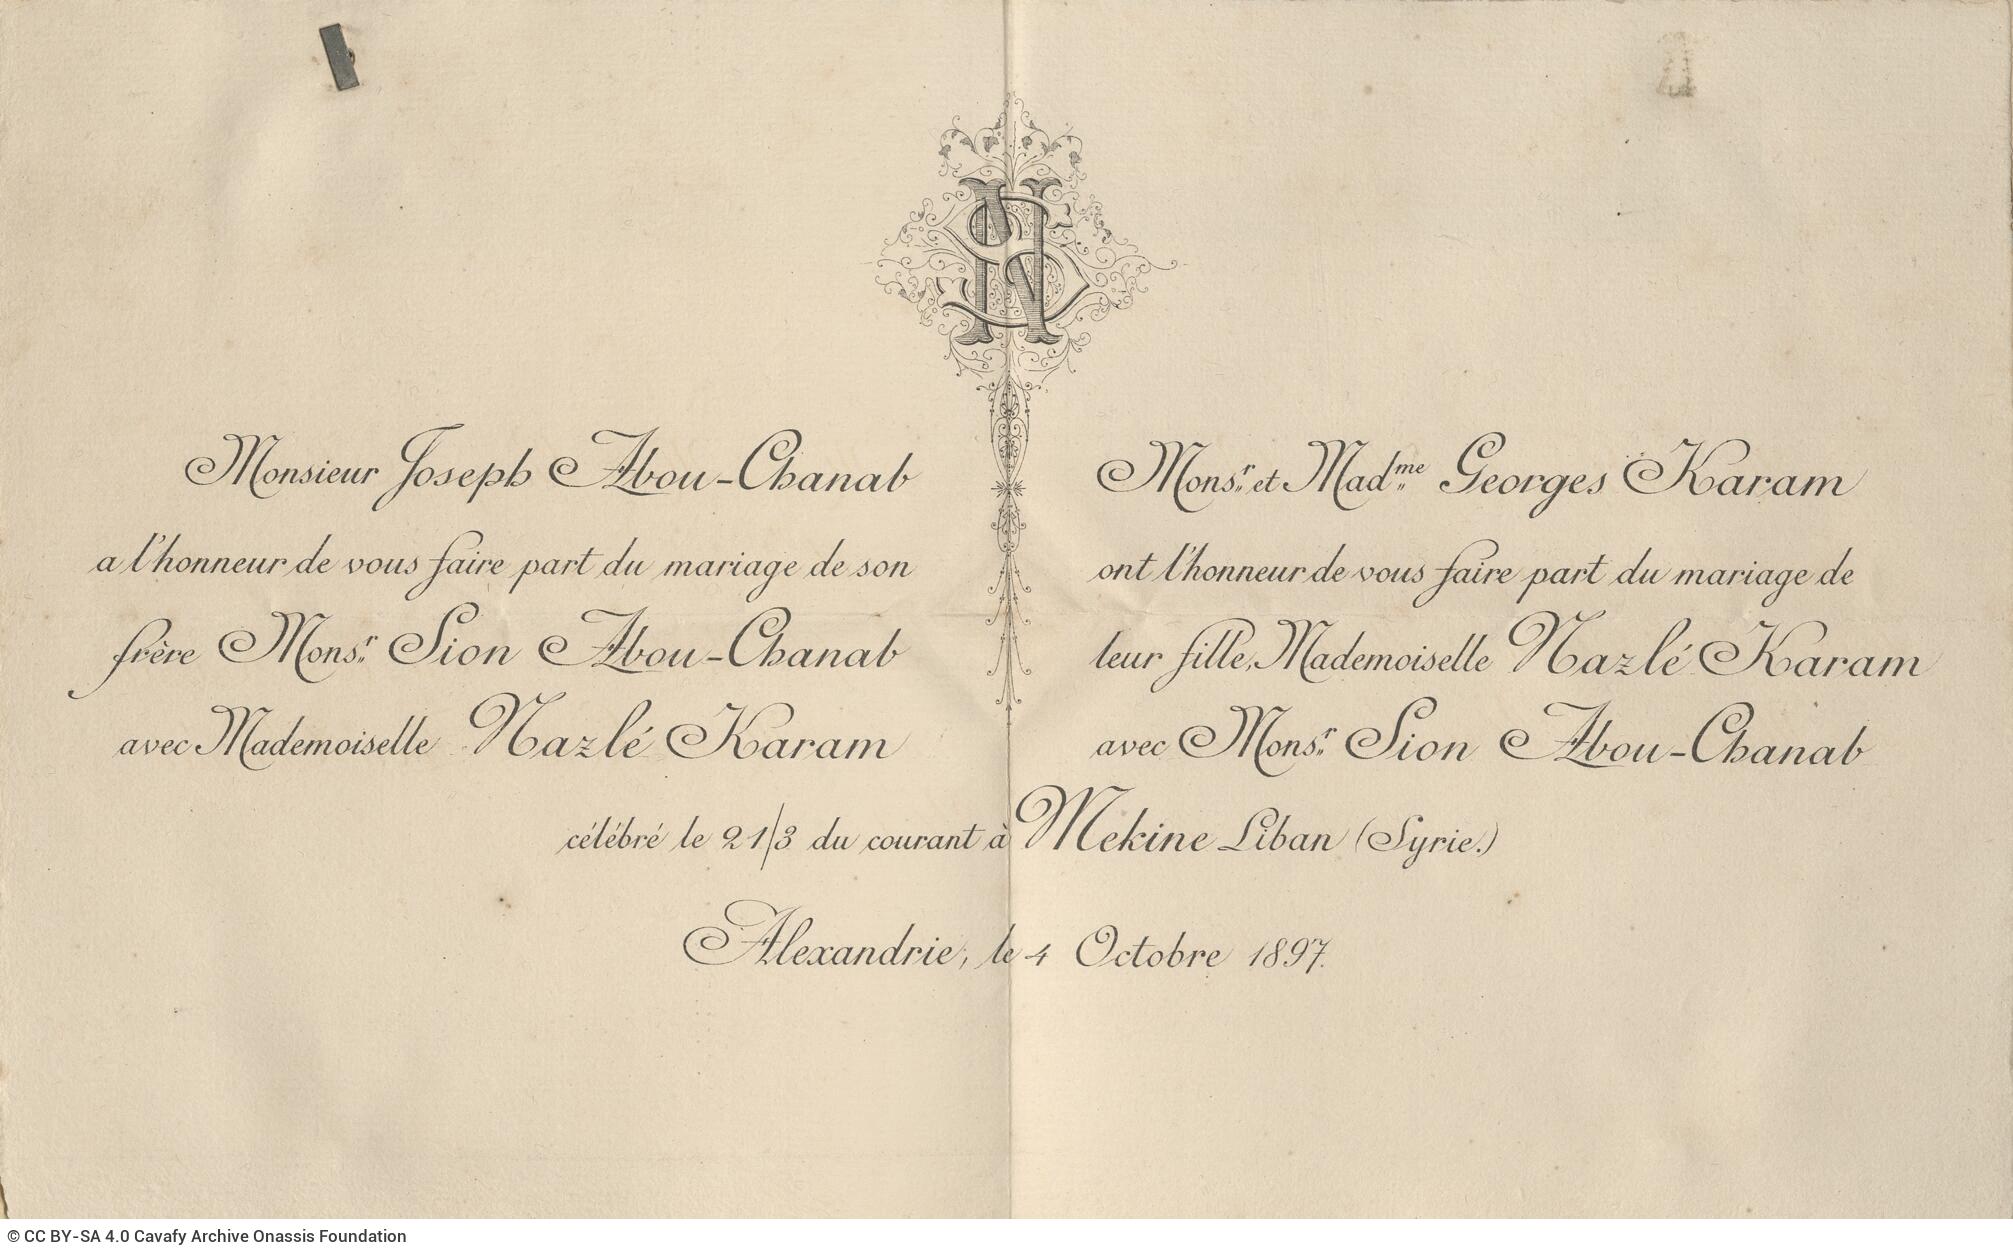 NS
Monsieur Joseph Abou-Chanab
a l'honneur de vous faire part du mariage de son
frère Monsr. Sion Abou-Chanab
avec Mademoiselle Nazlé Karam
Monsr. et Madme. Georges Karam
ont l'honneur de vous faire part du mariage de
leur fille, Mademoiselle Nazlé Karam
avec Monsr. Sion Abou-Chanab
célébré le 21/3 du courant à Mekine Liban (Syrie.)
Alexandrie, le 4 Octobre 1897.
© CC BY-SA 4.0 Cavafy Archive Onassis Foundation